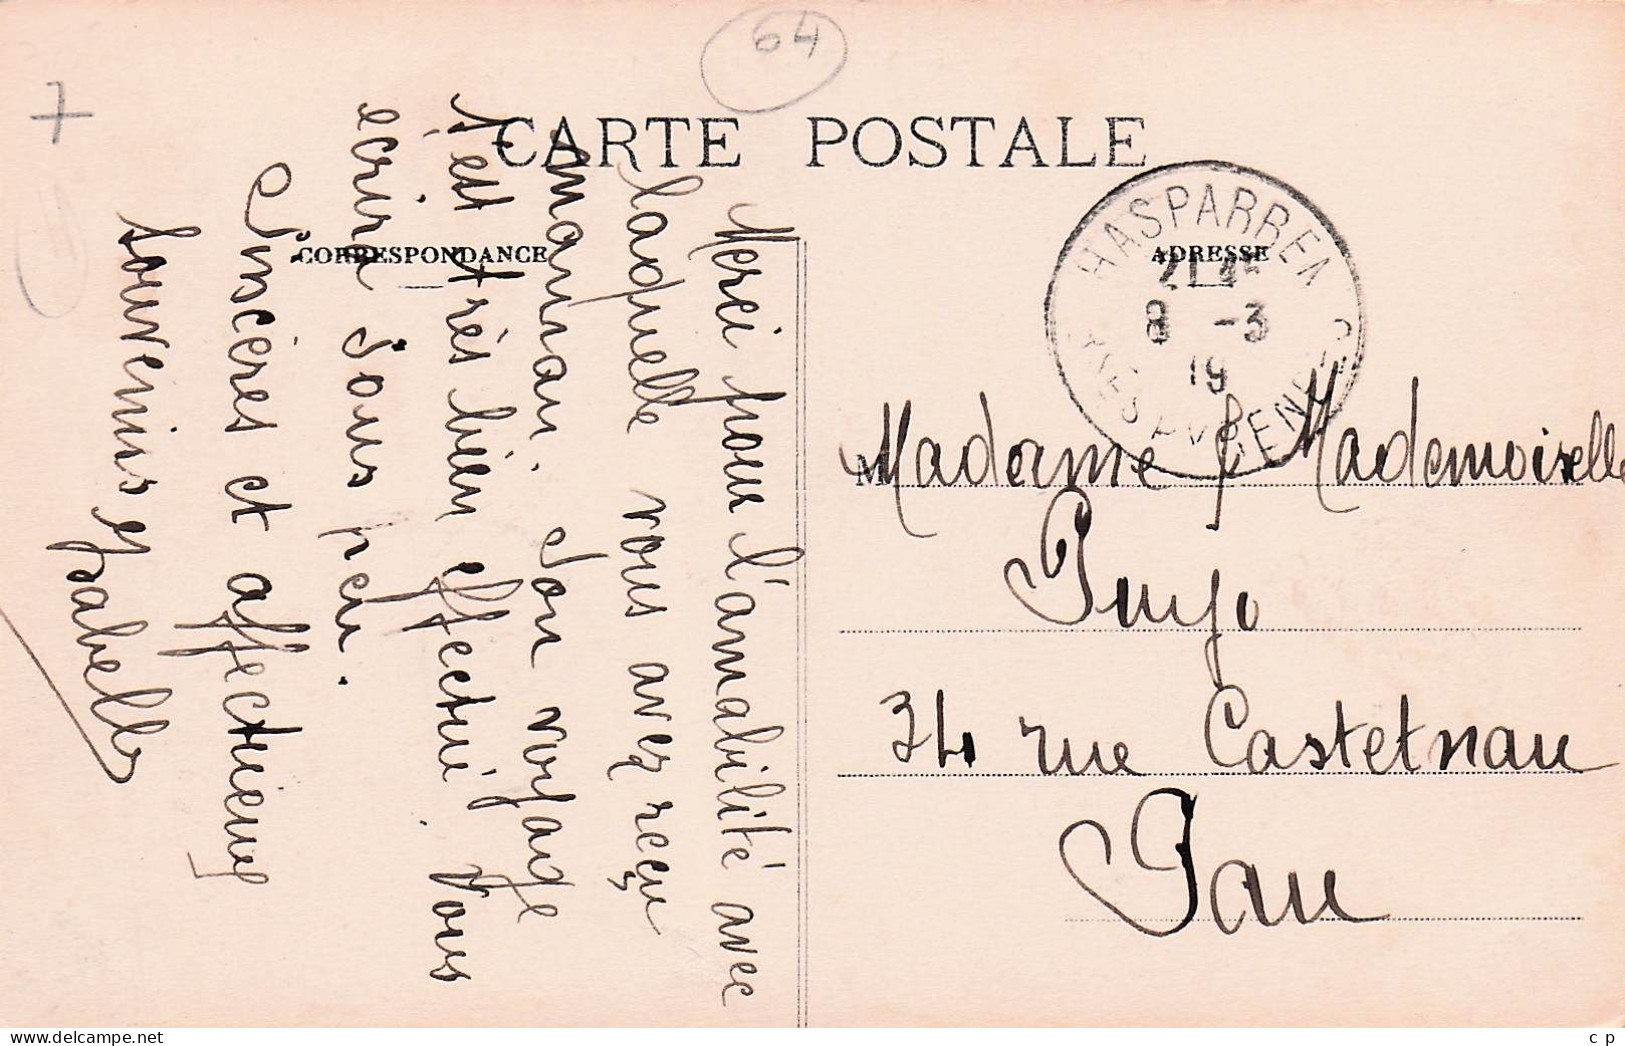 64
CARTE POSTALE
CORRESPONDANCE
ADRESSE
HASPARREN
8 -3
19
Merci pour l'amabilité avec
laquelle vous avez reçu
maman. Son voyage
s'est très bien effectué. Vous
ecrira sous peu.
Sincères et affectueux
souvenirs
Isabelle
M
Madame & Mademoiselle
Puyo
34 rue Castetnau
Pau
© delcampe.net
c p